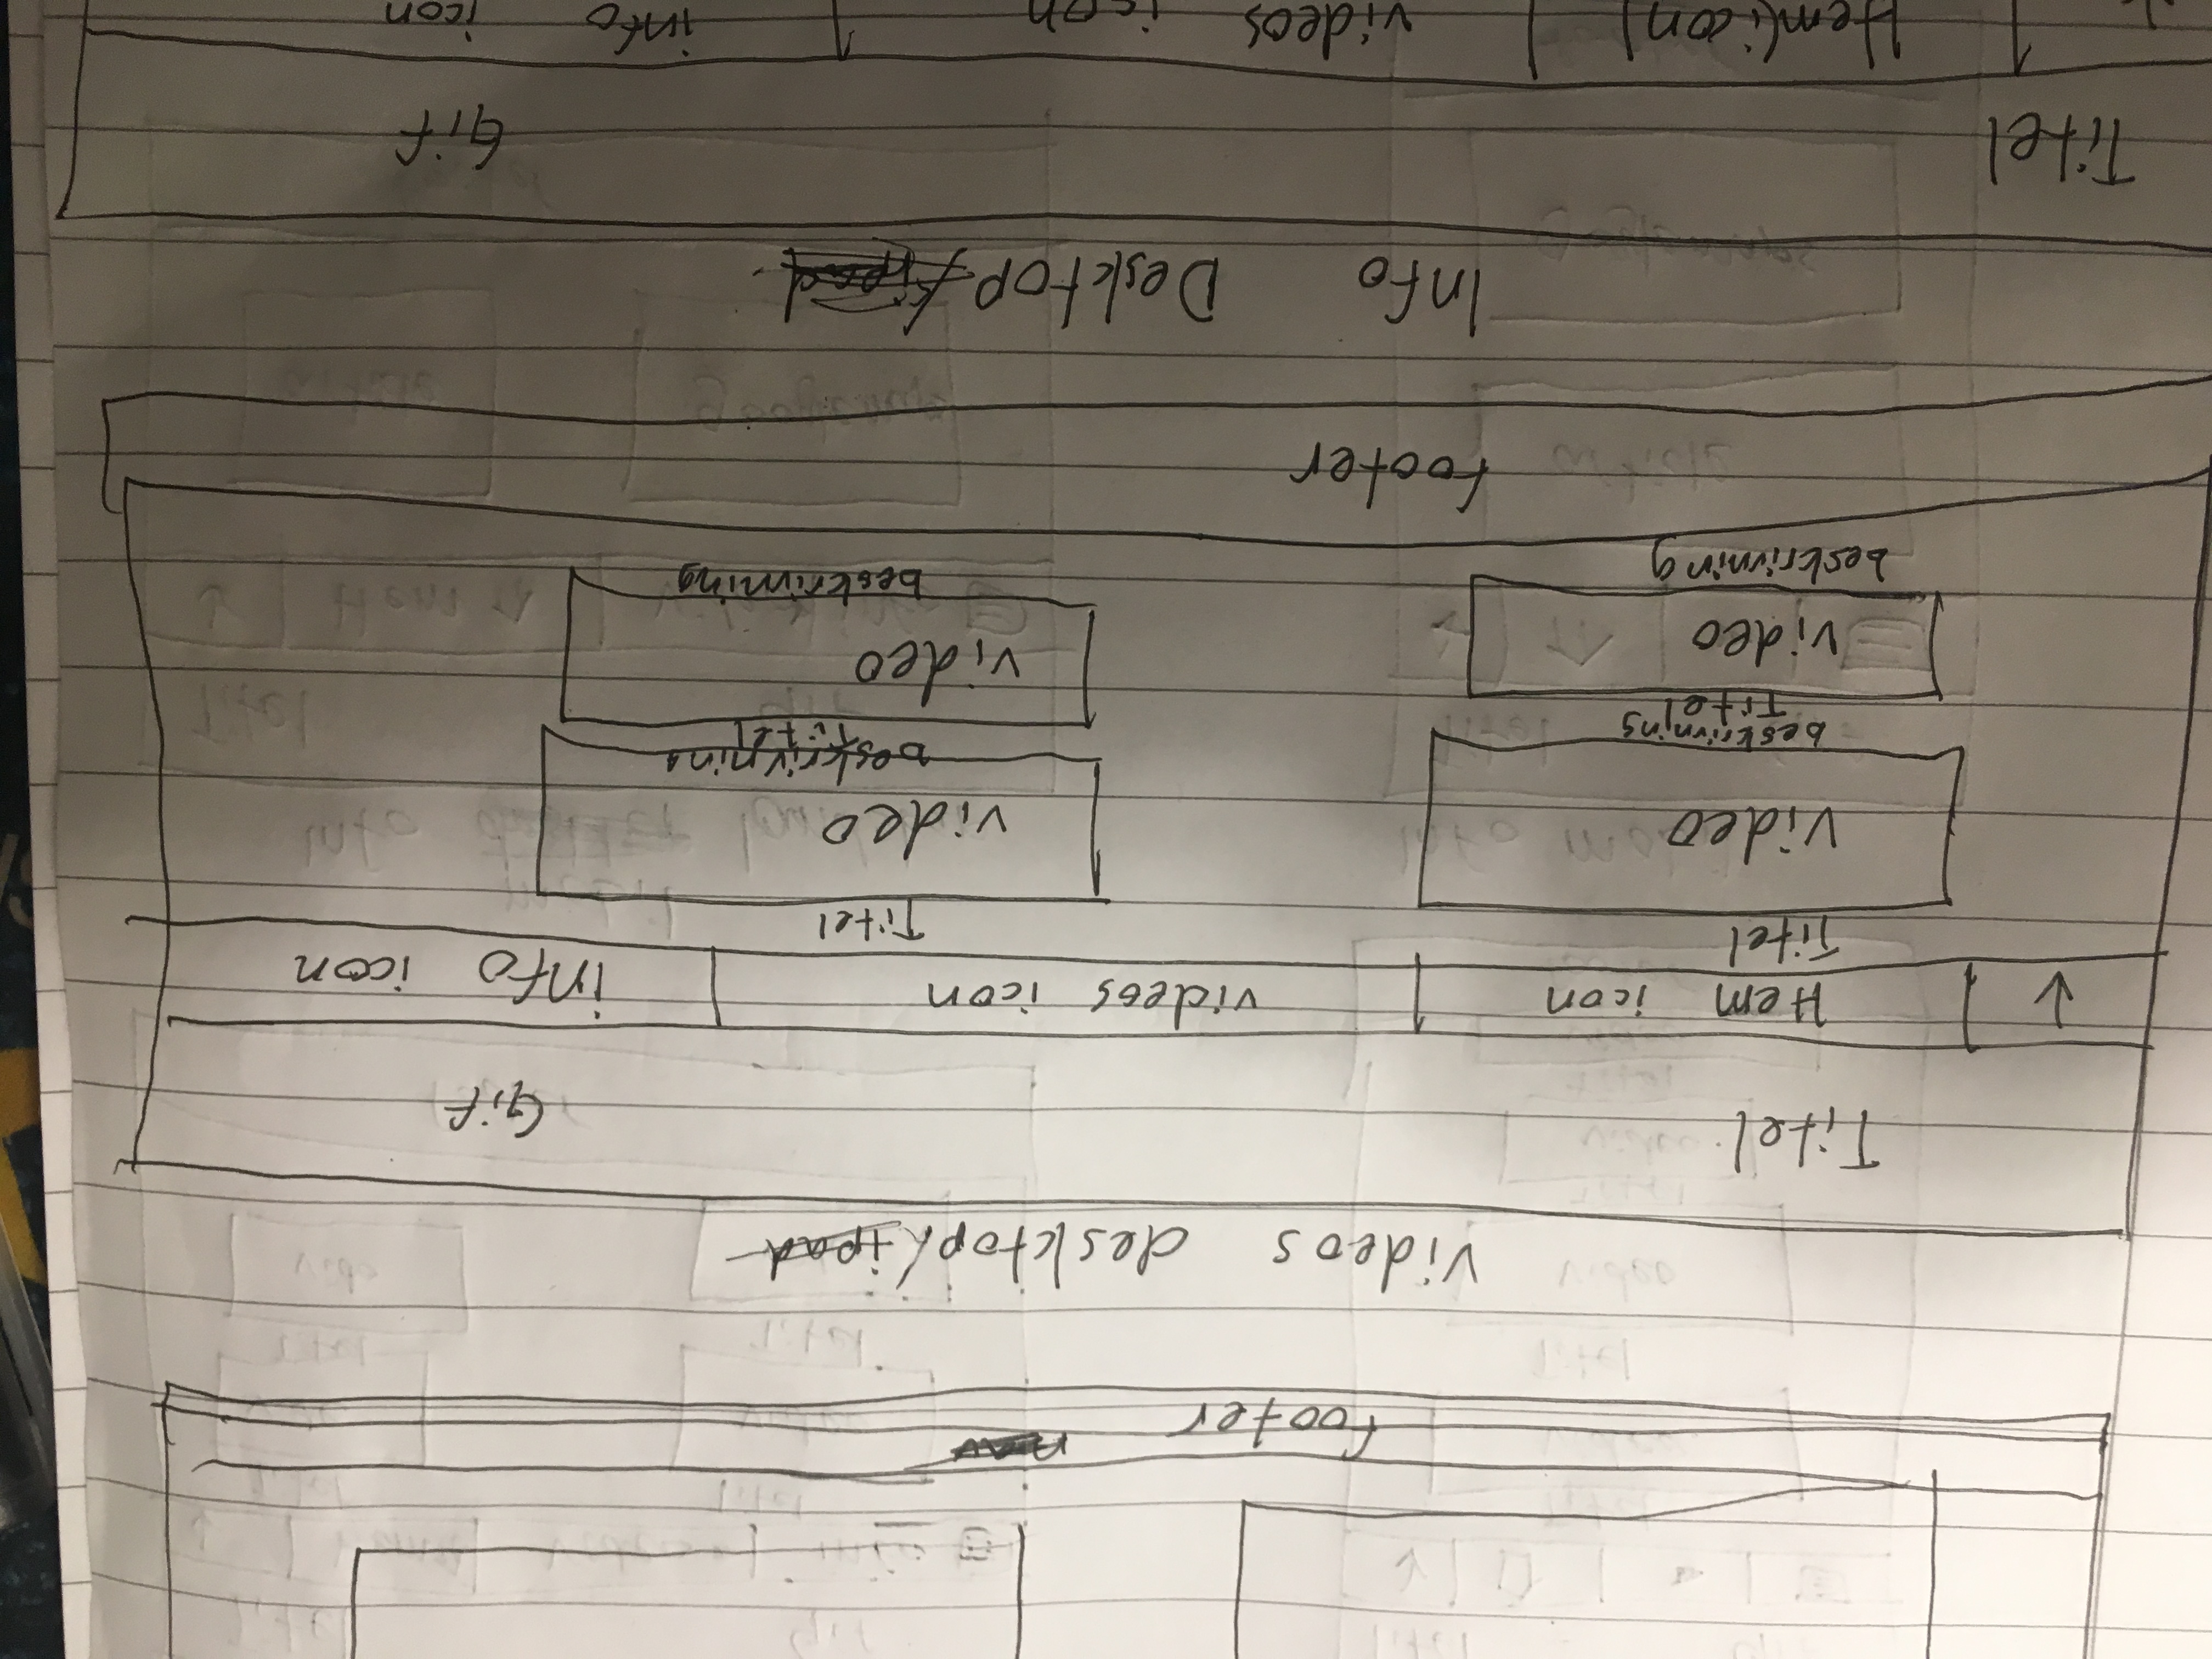 footer
Videos desktop/ipad
Titel Gif
↓ Hem icon videos icon info icon
Titel Titel
Video video
beskrivning beskrivning
Titel Titel
video video
beskrivning beskrivning
footer
Info Desktop
Titel Gif
Hem(icon) videos icon info icon